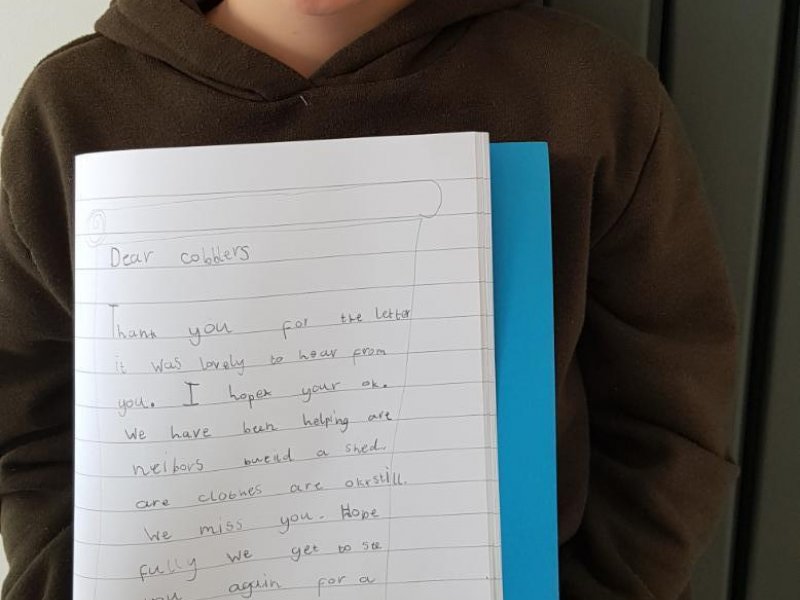 Dear cobblers
Thank you for the letter
it was lovely to hear from
you. I hope your ok.
We have been helping are
neibors a shed.
are clothes are okrstill.
We miss you. Hope
fully we get to see
you again for a